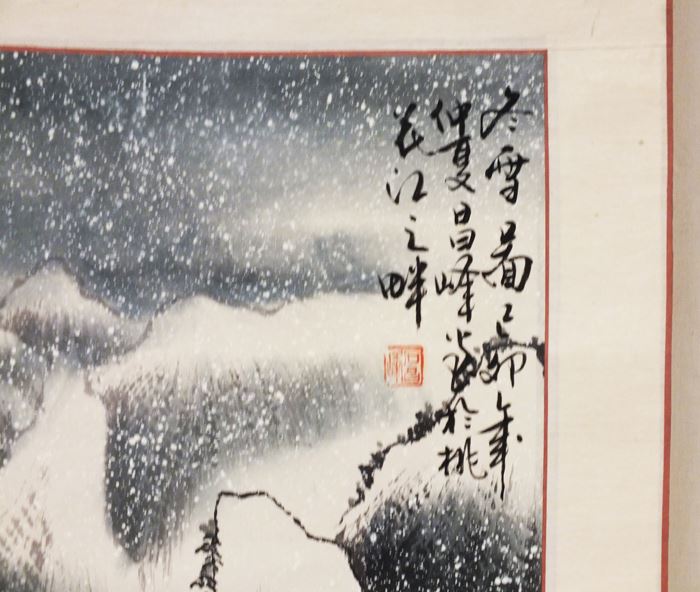 冬雪啚己卯年
仲夏昌峰寫於桃
花江之畔